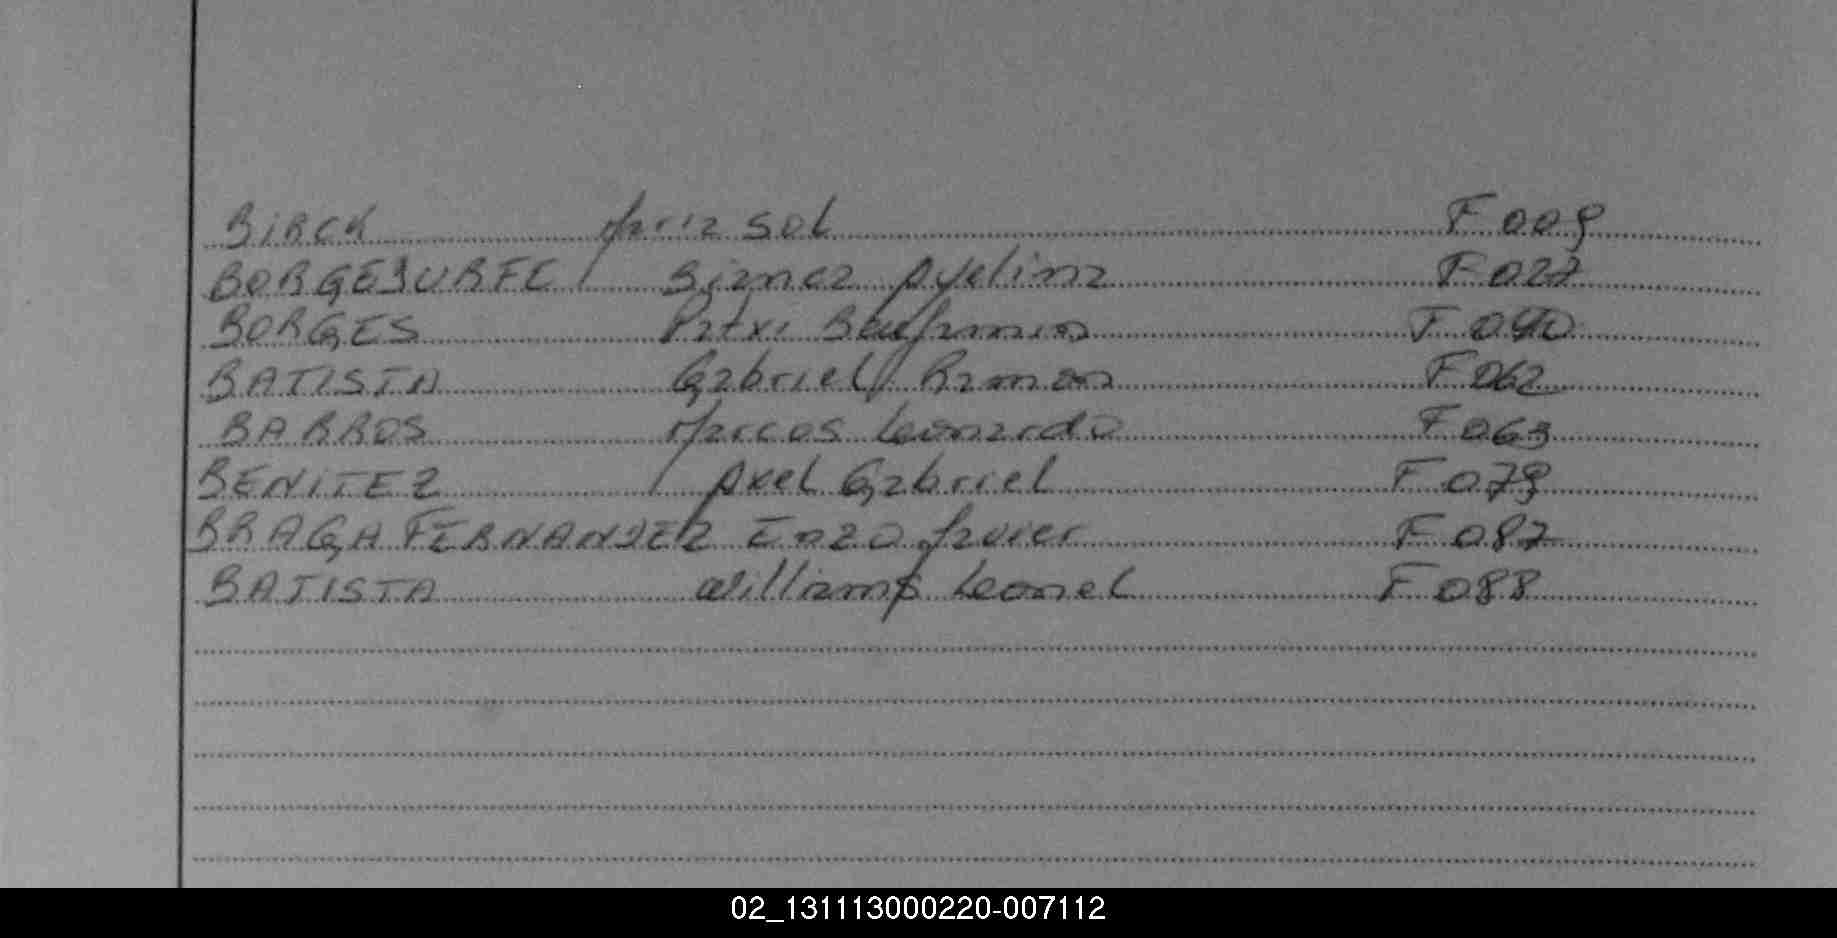 BIRCK Maria Sol F 009
BORGES URFE Bianca Ayelina F 027
BORGES Patxi Benjamin F 040
BATISTA Gabriel Ramon F 062
BARROS Marcos Leonardo F 063
BENITEZ Axel Gabriel F 079
BRAGA FERNANDEZ Enzo Javier F 087
BATISTA Williams Leonel F 088
02_131113000220-007112